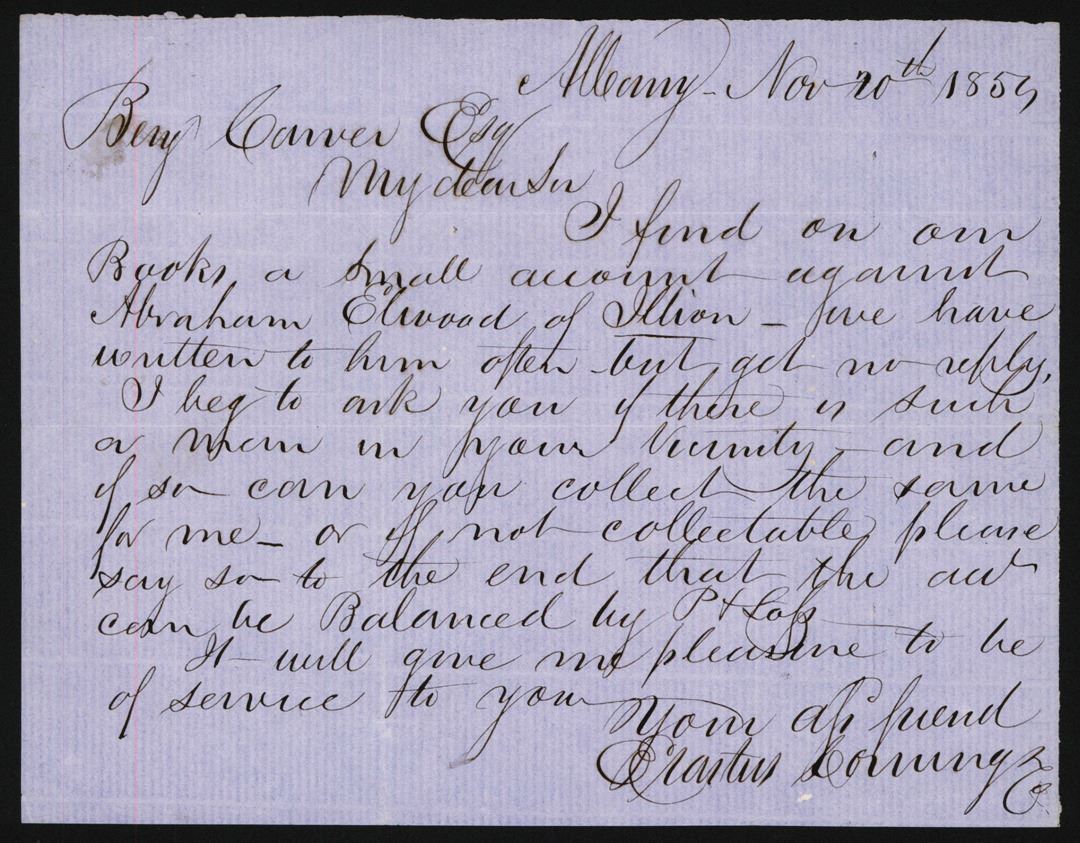 Albany - Nov 20th 1859
Benj Carver Esq
My dear Sir
I find on our
Books a small account against
Abraham Elwood of Illion - we have
written to him often but get no reply,
I beg to ask you if there is such
a man in your vicinity - and
if so can you collect the same
for me - or if not collectable please
say so to the end that the acct
can be Balanced by P & Loss
It will give me pleasure to be
of service to you
Your friend
Erastus Corning &
Co